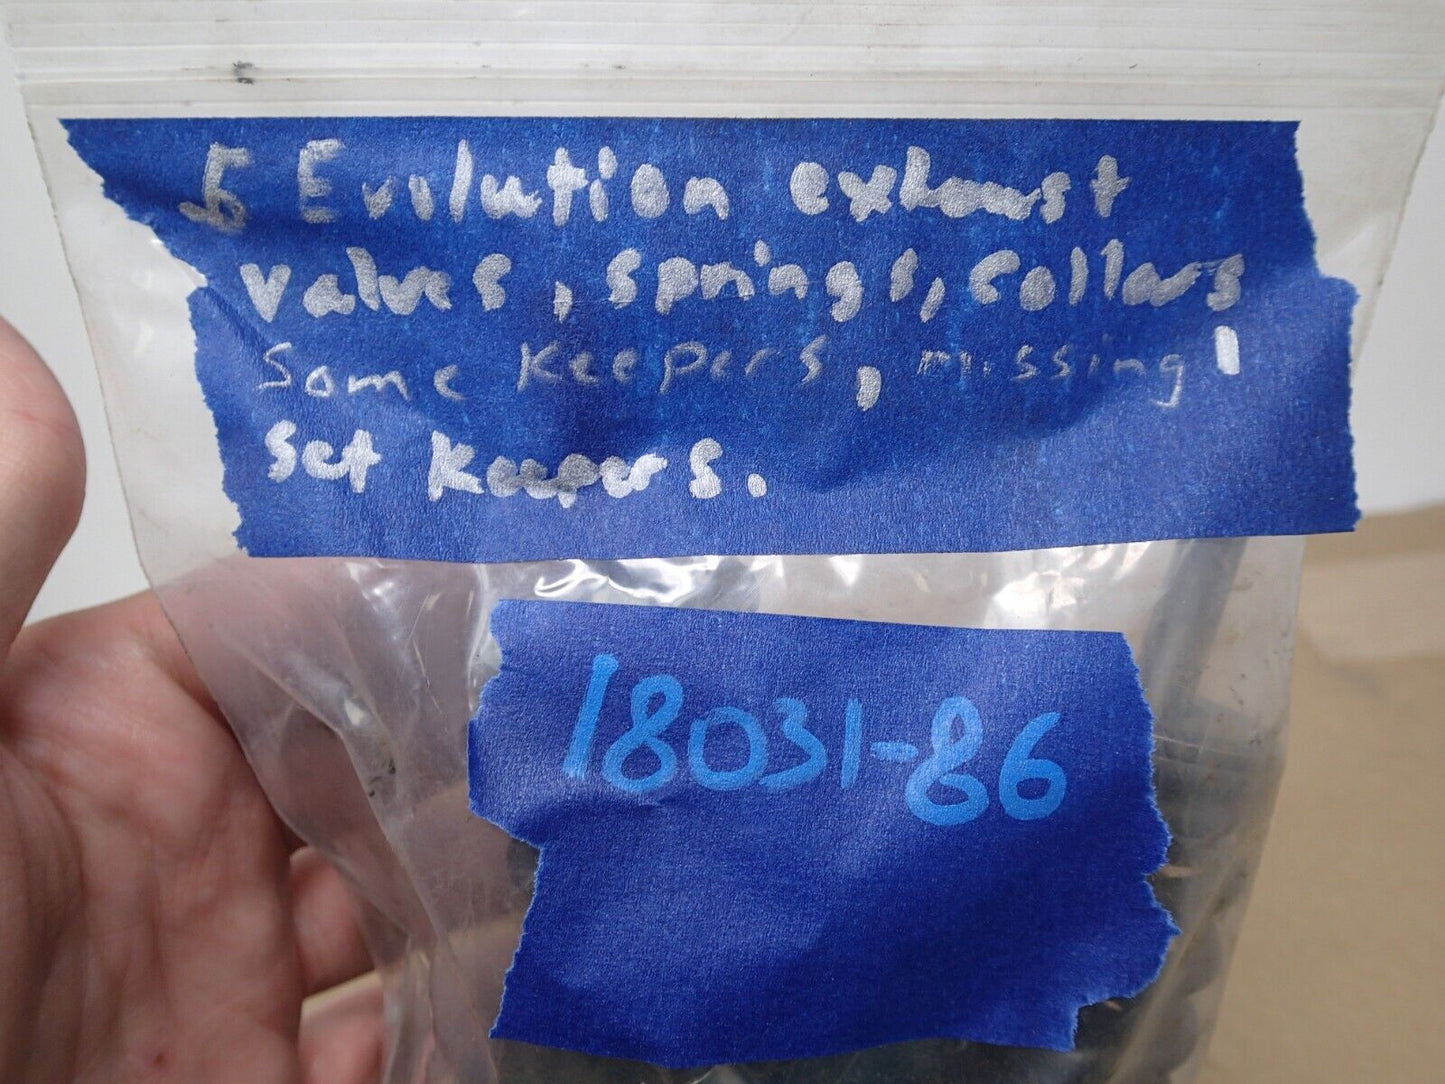 5 Evolution exhaust
valves, springs, collars
Some Keepers, missing 1
set keepers.
18031-86